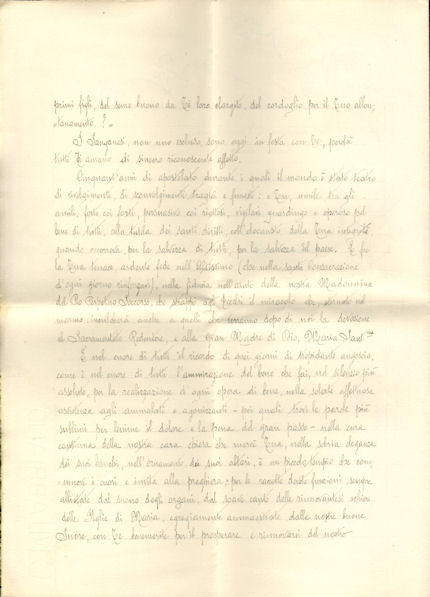 primi figli, del seme buono da Te loro elargito, del cordoglio per il Tuo allon-
tanamento?
I Sanganesi, non uno escluso, sono oggi in festa con Te, perchè
tutti Ti amano di sincero riconoscente affetto.
Cinquant'anni di apostolato durante i quali il mondo è stato teatro
di svolgimenti, di sconvolgimenti tragici e funesti: e Tu, umile tra gli
umili, forte coi forti, persuasivo coi riottosi, vigilasti guardingo e operoso pel
bene di tutti, alla tutela dei santi diritti, collocando della Tua integrità
quando occorreva, per la salvezza di tutti, per la salvezza del paese. E fu
la Tua tenace, ardente fede nell'Altissimo (che nella santa Consacrazione
d'ogni giorno rinforzavi), nella fiducia nell'aiuto della nostra Madonnina
del Perpetuo Soccorso, che strappò il miracolo che, eternato nel
marmo, a quelli che verranno dopo di noi la devozione
al Sacramentato Redentore, e alla Gran Madre di Dio, Maria
È nel cuore di tutti il ricordo di quei giorni di trepidante angoscia,
come è nel cuore di tutti l'ammirazione del bene che fai, nel silenzio più
assoluto, per la realizzazione d'ogni opera di bene, nella solerte affettuosa
assistenza agli ammalati e agonizzanti - pei quali trovi le parole più
sublimi per lenirne il dolore e la pena del gran passo - nella cura
continua della nostra cara chiesa che mercè Tua, nella sobria eleganza
dei suoi banchi, nell'ornamento dei suoi altari, è un piccolo tempio che com-
muove i cuori e invita alla preghiera; per le raccolte devote funzioni, sempre
allietate dal suono degli organi, dal soave canto delle rinnovantesi schiere
delle Figlie di Maria, egregiamente ammaestrate dalle nostre buone
Suore, con Te benemerite per il prosperare e rinnovarsi del nostro